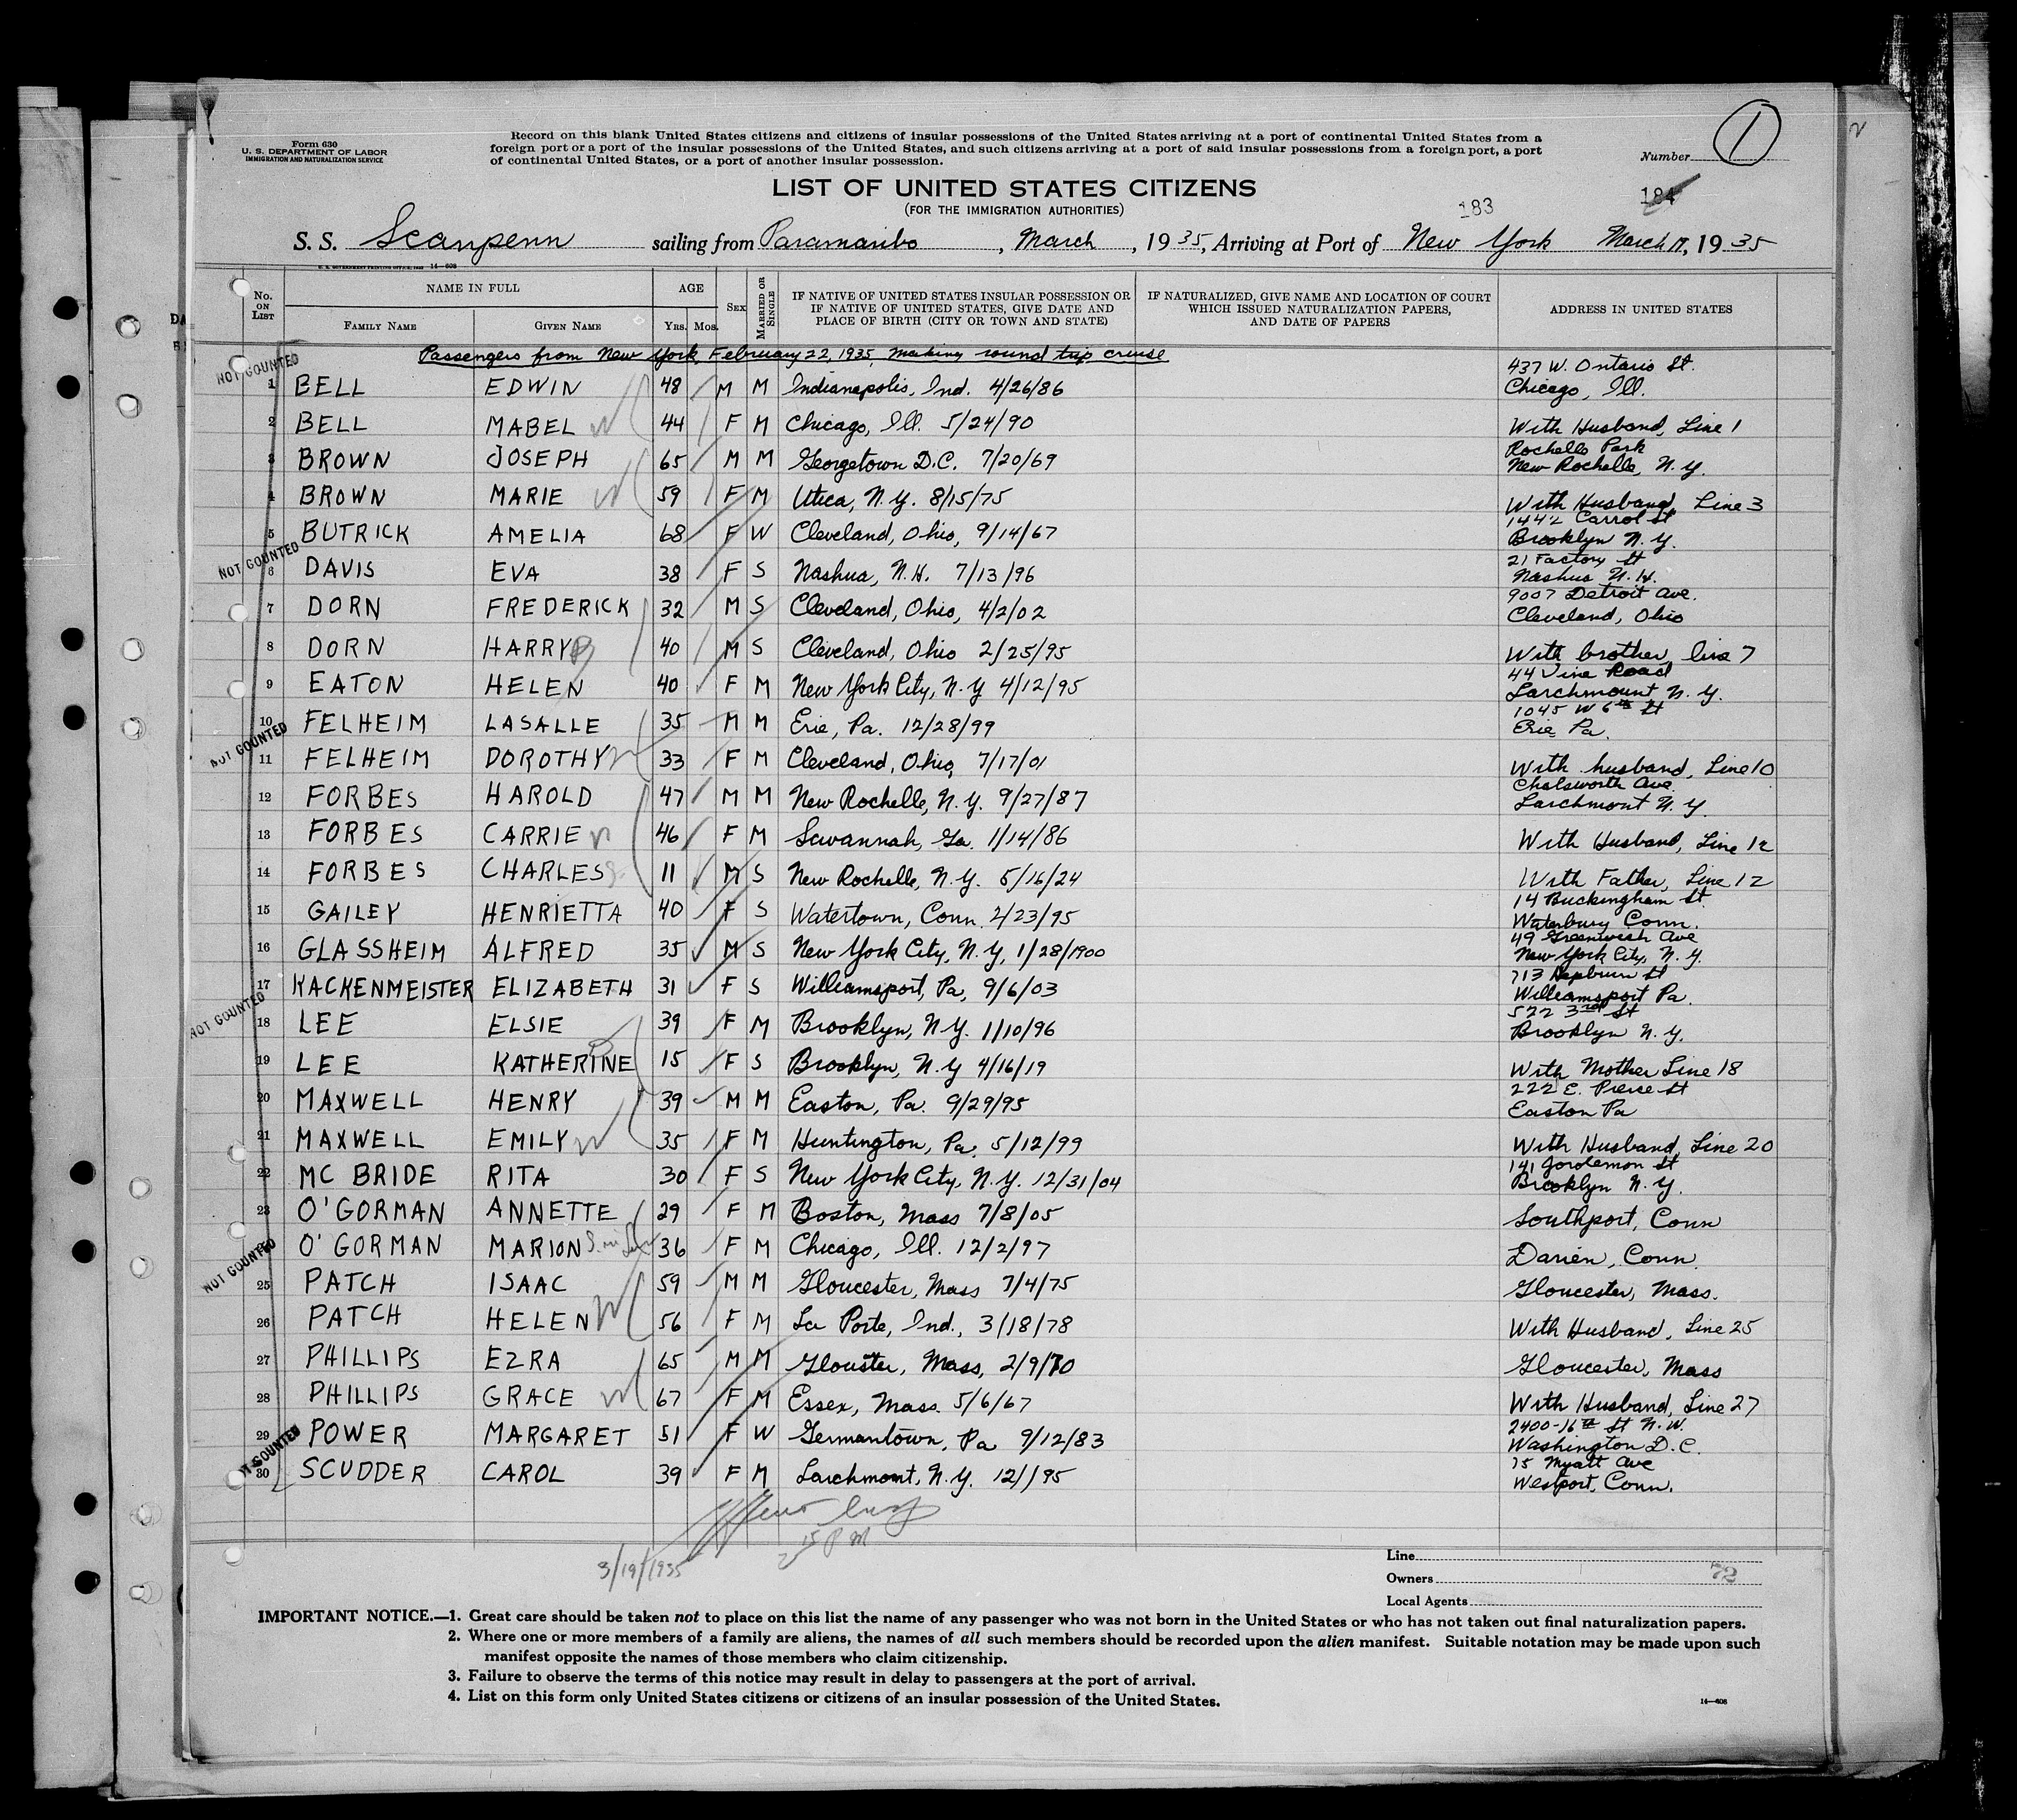 Form 630
U. S. DEPARTMENT OF LABOR
IMMIGRATION AND NATURALIZATION SERVICE
Record on this blank United States citizens and citizens of insular possessions of the United States arriving at a port of continental United States from a
foreign port or a port of the insular possessions of the United States, and such citizens arriving at a port of said insular possessions from a foreign port, a port
of continental United States, or a port of another insular possession.
Number 1
LIST OF UNITED STATES CITIZENS
(FOR THE IMMIGRATION AUTHORITIES)
183 184
S. S. Scanpenn sailing from Paramaribo, March, 1935, Arriving at Port of New York March 17, 1935
U. S. GOVERNMENT PRINTING OFFICE 14—608
No. ON LIST NAME IN FULL FAMILY NAME GIVEN NAME AGE Yrs. Mos. SEX MARRIED OR SINGLE IF NATIVE OF UNITED STATES INSULAR POSSESSION OR IF NATIVE OF UNITED STATES, GIVE DATE AND PLACE OF BIRTH (CITY OR TOWN AND STATE) IF NATURALIZED, GIVE NAME AND LOCATION OF COURT WHICH ISSUED NATURALIZATION PAPERS, AND DATE OF PAPERS ADDRESS IN UNITED STATES
Passengers from New York February 22, 1935, making round trip cruise
NOT COUNTED
1 BELL EDWIN 48 M M Indianapolis, Ind. 4/26/86 437 W. Ontario St. Chicago, Ill.
2 BELL MABEL 44 F M Chicago, Ill. 5/24/90 With Husband, Line 1
3 BROWN JOSEPH 65 M M Georgetown D.C. 7/20/69 Rochelle Park New Rochelle, N.Y.
4 BROWN MARIE 59 F M Utica, N.Y. 8/15/75 With Husband Line 3
5 BUTRICK AMELIA 68 F W Cleveland, Ohio, 9/14/67 1442 Carrol St Brooklyn N.Y.
NOT COUNTED
6 DAVIS EVA 38 F S Nashua, N.H. 7/13/96 21 Factory St Nashua N.H.
7 DORN FREDERICK 32 M S Cleveland, Ohio, 4/2/02 9007 Detroit Ave. Cleveland, Ohio
8 DORN HARRY 40 M S Cleveland, Ohio 2/25/95 With brother, line 7
9 EATON HELEN 40 F M New York City, N.Y 4/12/95 44 Vine Road Larchmount N.Y.
10 FELHEIM LASALLE 35 M M Erie, Pa. 12/28/99 1045 W 6th St Erie Pa.
NOT COUNTED
11 FELHEIM DOROTHY 33 F M Cleveland, Ohio, 7/17/01 With husband, Line 10
12 FORBES HAROLD 47 M M New Rochelle, N.Y. 9/27/87 Chatsworth Ave. Larchmont N.Y.
13 FORBES CARRIE 46 F M Savannah, Ga. 1/14/86 With Husband, Line 12
14 FORBES CHARLES 11 M S New Rochelle, N.Y. 5/16/24 With Father, Line 12
15 GAILEY HENRIETTA 40 F S Watertown, Conn. 2/23/95 14 Buckingham St. Waterbury Conn.
16 GLASSHEIM ALFRED 35 M S New York City, N.Y, 1/28/1900 49 Greenwich Ave New York City, N.Y.
17 KACKENMEISTER ELIZABETH 31 F S Williamsport, Pa, 9/6/03 713 Hepburn St Williamsport Pa.
NOT COUNTED
18 LEE ELSIE 39 F M Brooklyn, N.Y. 1/10/96 522 3rd St Brooklyn N.Y.
19 LEE KATHERINE 15 F S Brooklyn, N.Y 4/16/19 With Mother Line 18
20 MAXWELL HENRY 39 M M Easton, Pa. 9/29/95 222 E. Pierce St Easton Pa
21 MAXWELL EMILY 35 F M Huntington, Pa. 5/12/99 With Husband, Line 20
22 MC BRIDE RITA 30 F S New York City, N.Y. 12/31/04 141 Jorolemon St Brooklyn N.Y.
23 O'GORMAN ANNETTE 29 F M Boston, Mass 7/8/05 Southport, Conn
O'GORMAN MARION 36 F M Chicago, Ill. 12/2/97 Darien, Conn.
NOT COUNTED
25 PATCH ISAAC 59 M M Gloucester, Mass 7/4/75 Gloucester, Mass.
26 PATCH HELEN 56 F M La Porte, Ind., 3/18/78 With Husband, Line 25
27 PHILLIPS EZRA 65 M M Glouster, Mass, 2/9/70 Gloucester, Mass
28 PHILLIPS GRACE 67 F M Essex, Mass. 5/6/67 With Husband, Line 27
29 POWER MARGARET 51 F W Germantown, Pa 9/12/83 2400-16th St N.W. Washington D.C.
NOT COUNTED
30 SCUDDER CAROL 39 F M Larchmont, N.Y. 12/1/95 15 Myatt Ave Westport, Conn.
3/19/1935
Line
Owners 72
Local Agents
IMPORTANT NOTICE.—1. Great care should be taken not to place on this list the name of any passenger who was not born in the United States or who has not taken out final naturalization papers.
2. Where one or more members of a family are aliens, the names of all such members should be recorded upon the alien manifest. Suitable notation may be made upon such
manifest opposite the names of those members who claim citizenship.
3. Failure to observe the terms of this notice may result in delay to passengers at the port of arrival.
4. List on this form only United States citizens or citizens of an insular possession of the United States.
14—608